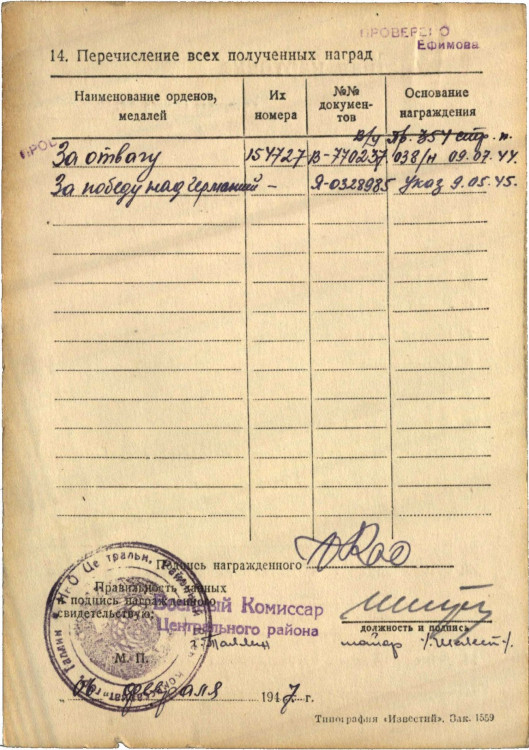 ПРОВЕРЕНО
Ефимова
14. Перечисление всех полученных наград
Наименование орденов, медалей
Их номера
№№ документов
Основание награждения
в/у Пр. 354 стр. п.
За отвагу 154727 В-770237 038/н 09.07.44.
За победу над Германией - Я-0328985 Указ 9.05.45.
Подпись награжденного
Правильность данных
и подпись награжденного
свидетельствую:
Военный Комиссар
Центрального района
г. Таллин
должность и подпись
майор
М. П.
06 февраля 1947 г.
Типография «Известий». Зак. 1559